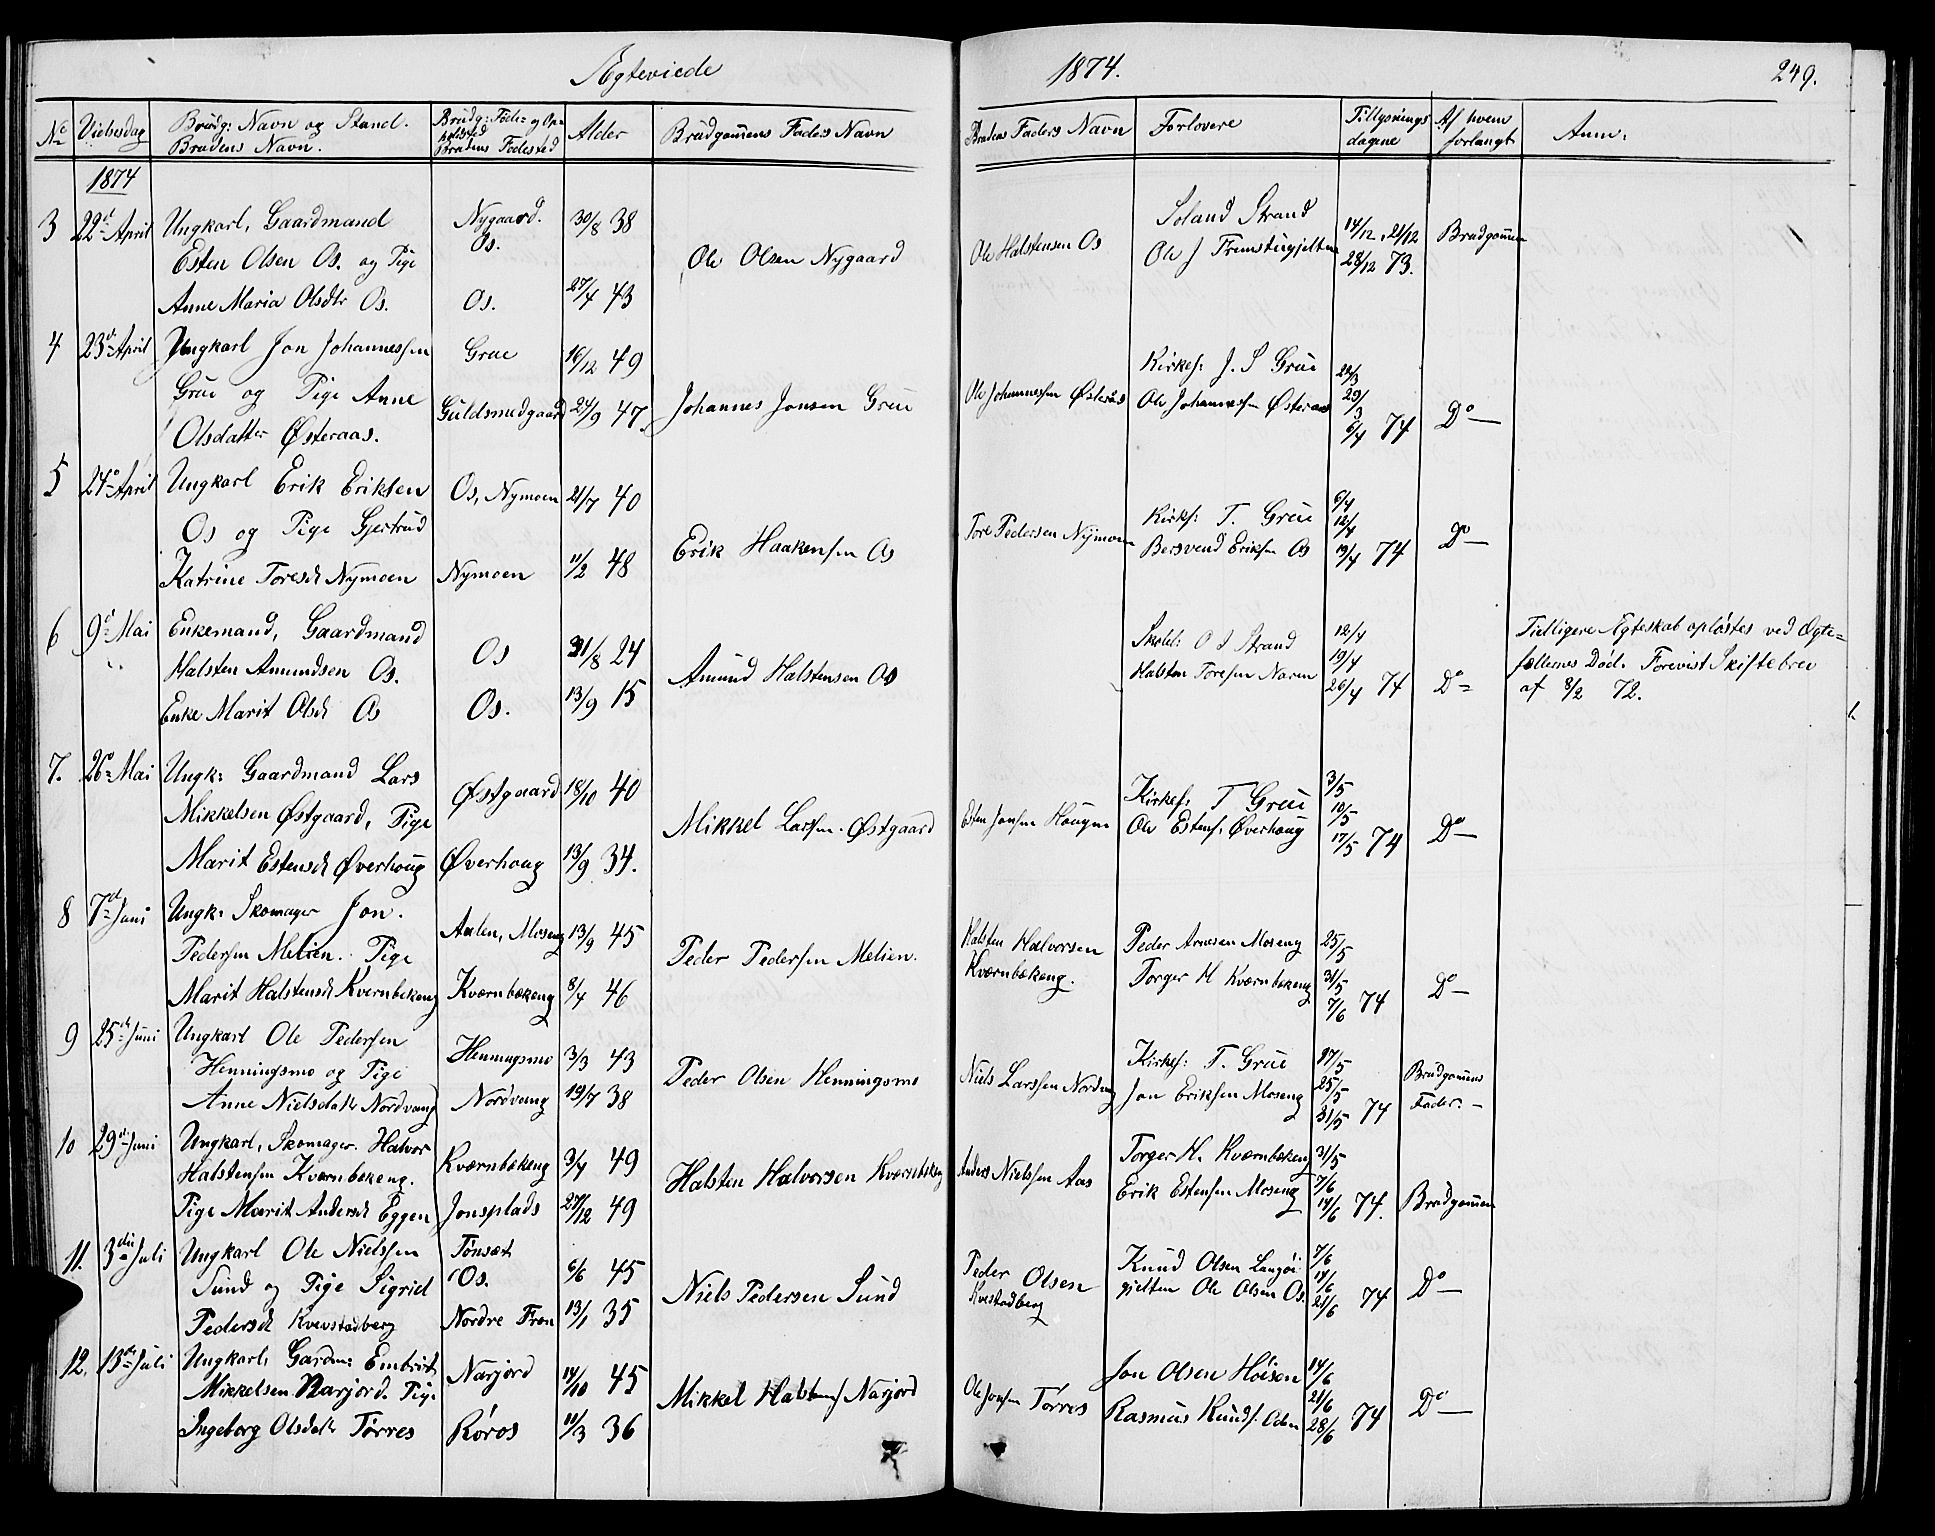 Ægteviede
1874.
249.
No Vielsesdag Brudg: Navn og Stand. Brudens Navn. Brudg: Føde- og Opholdsted Brudens Fødested Alder Brudgommens Faders Navn Brudens Faders Navn Forlovere Tillysningsdagene Af hvem forlangt Anm:
1874
3 22d April Ungkarl, Gaardmand Nygaard. 30/8 38 Soland Strand 14/12, 21/12 Brudgommen
Esten Olsen Os. og Pige Os. Ole Olsen Nygaard Ole Halstensen Os Ole J Tremstugjelten 28/12 73.
Anne Maria Olsdtr Os. Os. 27/4 43
4 23d April Ungkarl Jon Johannessen Grue 16/12 49 Kirkes: J. S Grue 22/3
Grue og Pige Anne Guldsmedgaard 24/9 47. Johannes Jonsen Grue Ole Johannessen Østeraas Ole Johannessen Østeraas 29/3
Olsdatter Østeraas. 6/4 74 Do
5 24d April Ungkarl Erik Eriksen Os, Nymoen 21/7 40 6/4
Os og Pige Gjertrud Erik Haakensen Os Tore Pedersen Nymoen Kirks: T. Grue 12/4
Katrine Toresd Nymoen Nymoen 11/2 48 Bersvend Eriksen Os 19/4 74 Do
6 9d Mai Enkemand, Gaardmand Os 31/8 24 Skolel: O S Strand 12/4 Tidligere Ægteskab opløstes ved Ægte=
" Halsten Amundsen Os. Amund Halstensen Os Halsten Toresen Narm 19/4 fællernes Død. Forevist Skiftebrev
Enke Marit Olsd Os Os. 13/9 15 26/4 74 Do af 8/2 72.
7. 26d Mai Ungk: Gaardmand Lars Østgaard 18/10 40 Kirkes: T Grue 3/5
Mikkelsen Østgaard, Pige Mikkel Larsen Østgaard Esten Jonsen Hougen Ole Estens. Øverhoug 10/5
Marit Estensd Øverhoug Øverhoug 13/9 34. 17/5 74 Do
8 7d Juni Ungk: Skomager Jon. Aalen, Moseng 13/9 45 Halsten Halvorsen Peder Arnesen Moseng 25/5
Pedersen Melien. Pige Peder Pedersen Melien. Kværnbækeng. Torger H Kværnbekeng 31/5
Marit Halstensd Kvernbekeng Kværnbækeng 8/4 46 7/6 74 Do
9 25d Juni Ungkarl Ole Pedersen Henningsmo 3/3 43 Kirkes: T. Grue 17/5 Brudgommens
Henningsmo og Pige Peder Olsen Henningsmo Niels Larssen Nordvang Jon Eriksen Moseng 25/5 Fader.
Anne Nielsdatr Nordvang Nordvang 19/7 38 31/5 74
10 29d Juni Ungkarl, Skomager. Halvor Kværnbækeng 3/4 49 Torger H. Kværnbækeng 31/5
Halstensen Kværnbekeng. Halsten Halvorsen Kværnbekeng Anders Nielssen Aas Erik Estensen Moseng 7/6
Pige Marit Andersd Eggen Jonsplads 27/12 49 14/6 74. Brudgommen
11. 3die Juli Ungkarl Ole Nielssen Tønsæt 6/6 45 Peder Olsen Knud Olsen Langøi 7/6
Sund og Pige Sigrid Os. Niels Pedersen Sund Kvestadberg gjelten Ole Olsen Os. 14/6
Pedersd Kvevstadberg Nordre Fron 13/1 35 21/6 74 Do
12. 13de Juli Ungkarl, Gardm: Embrit Narjord 14/10 45 Jon Olsen Høisen 14/6
Mikkelsen Narjord. Pige Mikkel Halstens Narjord Ole Jonsen Tørres Rasmus Knuds. Oden 21/6
Ingeborg Olsdatr Tørres Røros 11/3 36 28/6 74 Do